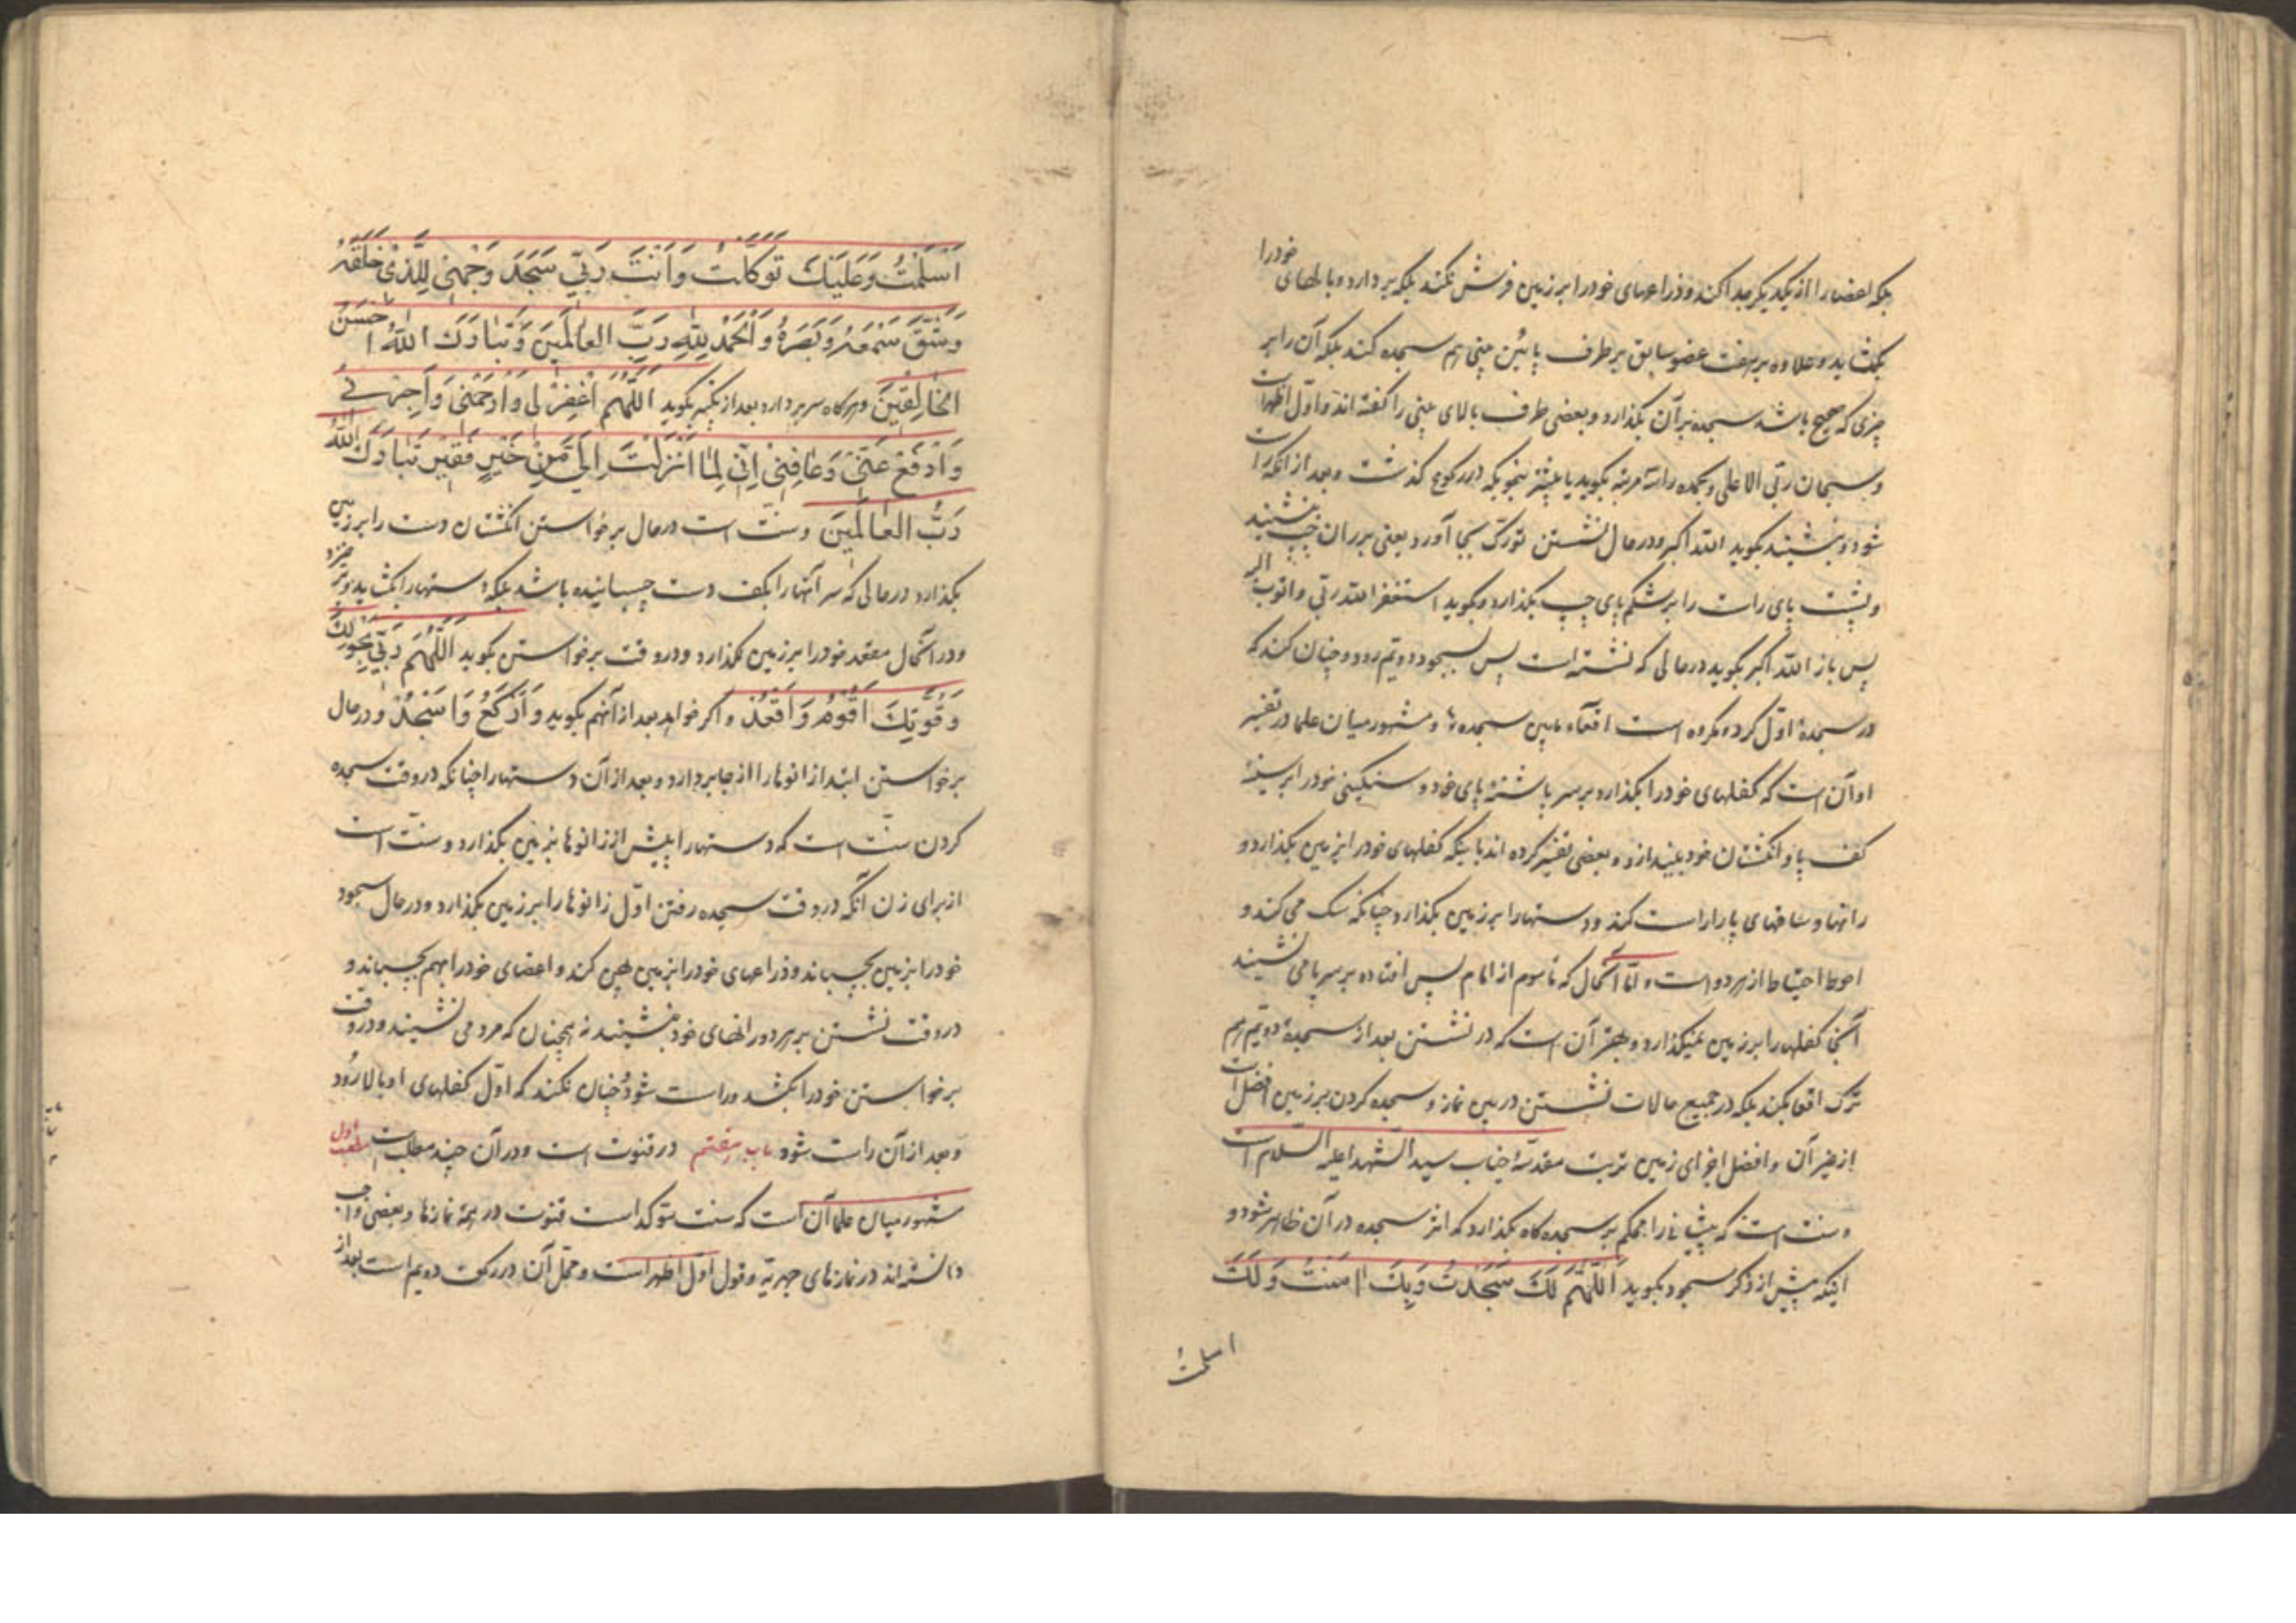 بلکه اعضا را از یکدیگر جدا کند و ذراعهای خود را بر زمین فرش نکند بلکه بردارد و بالهای خود را
بگشاید و علاوه بر هفت عضو سابق بر طرف پائین بینی هم سجده کند بلکه آن را بر
چیزی که صحیح باشد سجده بر آن بگذارد و بعضی طرف بالای بینی را گفته‌اند و اوّل اظهر است
و سبحان ربّی الاعلی و بحمده را سه مرتبه بگوید یا بیشتر بنحویکه در رکوع گذشت و بعد از آنکه راست
شود و بنشیند بگوید الله اکبر و در حال نشستن تورّک بجا آورد یعنی بر ران چپ بنشیند
و پشت پای راست را بر شکم پای چپ بگذارد و بگوید استغفر الله ربّی و اتوب الیه
پس باز الله اکبر بگوید در حالی که نشسته است پس بسجود دویّم رود و چنان کند که
در سجدهٔ اوّل کرد و مکروه است اقعاء مابین سجده‌ها و مشهور میان علما در تفسیر
او آن است که کفلهای خود را بگذارد بر سر پاشنهٔ پای خود و سنگینی خود را بر سینهٔ
کف پا و انگشتان خود بیندازد و بعضی تفسیر کرده‌اند باینکه کفلهای خود را بر زمین بگذارد و
رانها و ساقهای پا را راست کند و دستها را بر زمین بگذارد چنانکه سگ می‌کند و
احوط احتیاط از هر دو است و امّا آنحال که مأموم از امام پس افتاده بر سر پا می نشیند
کفلها را بر زمین نمیگذارد و بهتر آن است که در نشستن بعد از سجدهٔ دویّم هم
ترک اقعا بکند بلکه در جمیع حالات نشستن در بین نماز و سجده کردن بر زمین افضل است
از غیر آن و افضل اجزای زمین تربت مقدّسهٔ جناب سید الشّهدا علیه السّلام است
و سنت است که پیشانی را محکم بر سجده‌گاه بگذارد که اثر سجده در آن ظاهر شود و
اینکه پیش از ذکر سجود بگوید اَللّٰهُمَّ لَکَ سَجَدْتُ وَبِکَ اٰمَنْتُ وَلَکَ
اسلمت
اَسْلَمْتُ وَعَلَیْکَ تَوَکَّلْتُ وَاَنْتَ رَبّی سَجَدَ وَجْهی لِلَّذی خَلَقَهُ
وَشَقَّ سَمْعَهُ وَبَصَرَهُ وَالْحَمْدُ لِلّٰهِ رَبِّ العٰالَمینَ وَتَبٰارَکَ اللّٰهُ اَحْسَنُ
الخٰالِقینَ و هرگاه سر بردارد بعد از تکبیر بگوید اَللّٰهُمَّ اغْفِرْ لی وَارْحَمْنی وَاَجِرْنی
وَادْفَعْ عَنّی وَعٰافِنی اِنّی لِمٰا اَنْزَلْتَ اِلَیَّ مِنْ خَیْرٍ فَقیرٌ تَبٰارَکَ اللّٰهُ
رَبُّ العٰالَمینَ و سنّت است در حال برخواستن انگشتان دست را بر زمین
بگذارد در حالی که سر آنها را بکف دست چسبانیده باشد بلکه دستها را بگشاید
و در آنحال مقعد خود را بر زمین نگذارد و در وقت برخواستن بگوید اَللّٰهُمَّ رَبّی بِحَوْلِکَ
وَقُوَّتِکَ اَقُومُ وَاَقْعُدُ و اگر خواهد بعد از آنهم بگوید وَاَرْکَعُ وَاَسْجُدُ و در حال
برخواستن ابتدا زانوها را از جا بردارد و بعد از آن دستها را چنانکه در وقت سجده
کردن سنّت است که دستها را پیش از زانوها بزمین بگذارد و سنّت است
از برای زن آنکه در وقت سجده رفتن اوّل زانوها را بر زمین بگذارد و در حال سجود
خود را بزمین بچسباند و ذراعهای خود را بزمین پهن کند و اعضای خود را بهم بچسباند و
در وقت نشستن بر هر دو رانهای خود بنشیند نه بهچنان که مرد می نشیند و در وقت
برخواستن خود را بکشد و راست شود و چنان نکند که اوّل کفلهای او بالا رود
و بعد از آن راست شود باب هفتم در قنوت است و در آن چند مطلب است مطلب اول
مشهور میان علما آن است که سنت مؤکد است قنوت در همهٔ نمازها و بعضی واجب
دانسته‌اند در نمازهای جهریّه و قول اوّل اظهر است و محلّ آن در رکعت دویم است بعد از